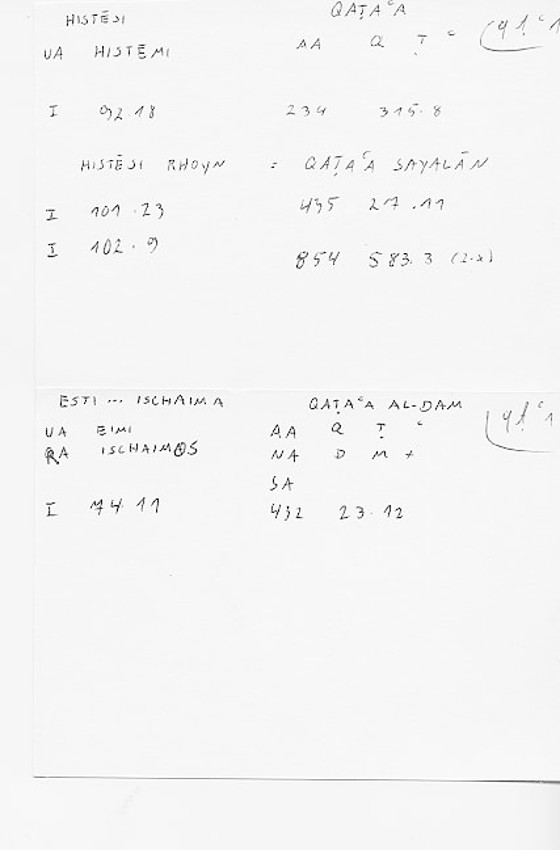 HISTĒSI QAṬAʿA
UA HISTĒMI AA Q Ṭ ʿ qṭʿ1
I 92.18 234 315.8
HISTĒSI RHOYN = QAṬAʿA SAYALĀN
I 101.23 435 27.11
I 102.9 854 583.3 (2.x)
ESTI ... ISCHAIMA QAṬAʿA AL-DAM
UA EIMI AA Q Ṭ ʿ qṭʿ1
RA ISCHAIMOS NA D M +
SA
I 74.11 432 23.12